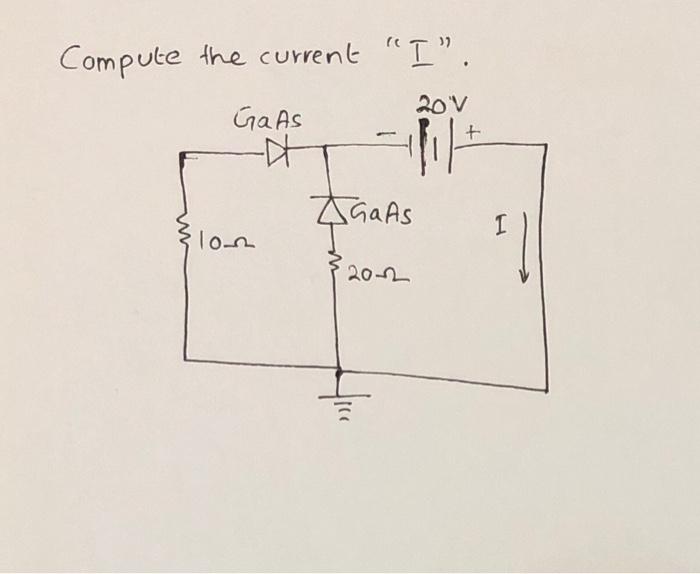 Compute the current "I".
20V
GaAs
- +
GaAs
I
10Ω
20Ω